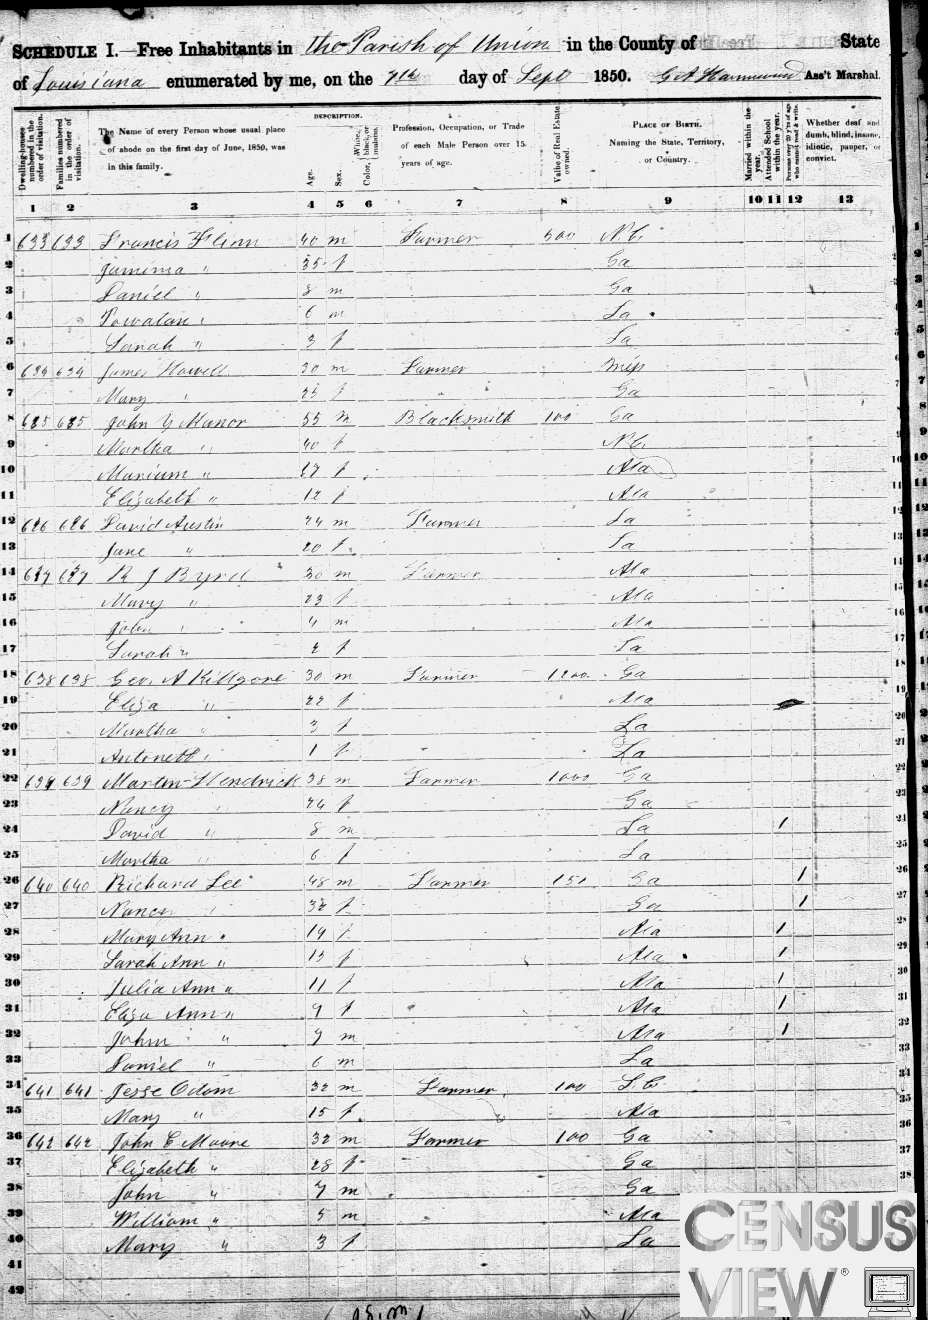 SCHEDULE I.—Free Inhabitants in the Parish of Union in the County of State
of Louisiana enumerated by me, on the 7th day of Sept 1850. Ass't Marshal.
Dwelling-houses numbered in the order of visitation.
Families numbered in the order of visitation.
The Name of every Person whose usual place of abode on the first day of June, 1850, was in this family.
DESCRIPTION.
Age.
Sex.
Color, White, black, or mulatto.
Profession, Occupation, or Trade of each Male Person over 15 years of age.
Value of Real Estate owned.
PLACE OF BIRTH. Naming the State, Territory, or Country.
Married within the year.
Attended School within the year.
Persons over 20 y'rs of age who cannot read & write.
Whether deaf and dumb, blind, insane, idiotic, pauper, or convict.
1 2 3 4 5 6 7 8 9 10 11 12 13
1 633 633 Francis Flinn 40 m Farmer 500 N.C. 1
2 Jamima " 35 f Ga 2
3 Daniel " 8 m Ga 3
4 Powatan " 6 m La 4
5 Sarah " 3 f La 5
6 634 634 James Howell 30 m Farmer Miss 6
7 Mary " 25 f Ga 7
8 635 635 John Y Manor 55 m Blacksmith 100 Ga 8
9 Martha " 40 f N.C. 9
10 Marium " 17 f Ala 10
11 Elizabeth " 12 f Ala 11
12 636 636 David Austin 24 m Farmer La 12
13 Jane " 20 f La 13
14 637 637 R J Byrd 30 m Farmer Ala 14
15 Mary " 23 f Ala 15
16 John " 4 m Ala 16
17 Sarah " 2 f La 17
18 638 638 Geo. A Killgore 30 m Farmer 1200 Ga 18
19 Eliza " 22 f Ala 19
20 Martha " 3 f La 20
21 Antonett " 1 f La 21
22 639 639 Martin Hendrick 38 m Farmer 1000 Ga 22
23 Nancy " 24 f Ga 23
24 David " 8 m La 1 24
25 Martha " 6 f La 25
26 640 640 Richard Lee 48 m Farmer 151 Ga 1 26
27 Nancy " 32 f Ga 1 27
28 Mary Ann " 14 f Ala 1 28
29 Sarah Ann " 13 f Ala 1 29
30 Julia Ann " 11 f Ala 1 30
31 Eliza Ann " 9 f Ala 1 31
32 John " 7 m Ala 1 32
33 Daniel " 6 m La 33
34 641 641 Jesse Odom 32 m Farmer 100 S.C. 34
35 Mary " 15 f Ala 35
36 642 642 John C Moore 32 m Farmer 100 Ga 36
37 Elizabeth " 28 f Ga 37
38 John " 7 m Ga 38
39 William " 5 m Ala
40 Mary " 3 f La
41
42
CENSUS
VIEW®